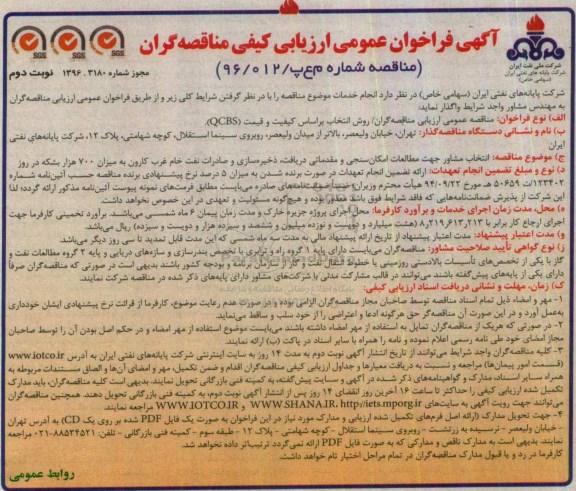 آگهی فراخوان عمومی ارزیابی کیفی مناقصه‌گران
(مناقصه شماره م‌ع‌پ/۹۶/۰۱۲)
مجوز شماره ۳۱۸۰. ۱۳۹۶
نوبت دوم
شرکت ملی نفت ایران
شرکت پایانه های نفتی ایران
(سهامی خاص)
SGS SGS SGS
شرکت پایانه‌های نفتی ایران (سهامی خاص) در نظر دارد انجام خدمات موضوع مناقصه را با در نظر گرفتن شرایط کلی زیر و از طریق فراخوان عمومی ارزیابی مناقصه‌گران
به مهندس مشاور واجد شرایط واگذار نماید:
الف) نوع فراخوان: مناقصه عمومی ارزیابی مناقصه‌گران/ روش انتخاب براساس کیفیت و قیمت (QCBS).
ب) نام و نشانی دستگاه مناقصه‌گذار: تهران، خیابان ولیعصر، بالاتر از میدان ولیعصر، روبروی سینما استقلال، کوچه شهامتی، پلاک ۱۲، شرکت پایانه‌های نفتی
ایران
ج) موضوع مناقصه: انتخاب مشاور جهت مطالعات امکان‌سنجی و مقدماتی دریافت، ذخیره‌سازی و صادرات نفت خام غرب کارون به میزان ۷۰۰ هزار بشکه در روز
د) نوع و مبلغ تضمین انجام تعهدات: ارائه تضمین انجام تعهدات در صورت برنده شدن به میزان ۵ درصد نرخ پیشنهادی برنده مناقصه حسب آئین‌نامه شماره
۱۲۳۴۰۲/ت ۵۰۶۵۹ هـ مورخ ۹۴/۰۹/۲۲ هیأت محترم وزیران ضمناً ضمانت‌نامه‌های صادره می‌بایست مطابق فرمت‌های نمونه پیوست آئین‌نامه مذکور ارائه گردد؛ لذا
این شرکت از پذیرش ضمانت‌نامه‌هایی که فاقد شرایط فوق باشد معذور بوده و هیچ‌گونه مسئولیت و تعهدی در این خصوص نخواهد داشت.
ه) محل، مدت زمان اجرای خدمات و برآورد کارفرما: محل اجرای پروژه جزیره خارک و مدت زمان پیمان ۶ ماه شمسی می‌باشد. برآورد تخمینی کارفرما جهت
اجرای ارجاع کار برابر با ۸٫۲۱۹٫۶۱۳٫۲۱۳ (هشت میلیارد و دویست و نوزده میلیون و ششصد و سیزده هزار و دویست و سیزده) ریال می‌باشد.
و) مدت اعتبار پیشنهاد: مدت اعتبار پیشنهاد از تاریخ ارائه پیشنهاد مالی به مدت سه ماه شمسی که این مدت قابل تمدید تا سی روز دیگر می‌باشد.
ز) نوع گواهی تأیید صلاحیت مشاور: مناقصه‌گران می‌بایست دارای پایه ۱ گروه راه و ترابری با تخصص بندرسازی و سازه‌های دریایی و پایه ۲ گروه مطالعات نفت و
گاز با یکی از تخصص‌های تأسیسات بالادستی روزمینی یا خطوط انتقال نفت و گاز از سازمان برنامه و بودجه کشور باشند بدیهی است در صورتی که مناقصه‌گران صرفاً
دارای یکی از پایه‌های پیش‌گفته باشند می‌توانند در قالب مشارکت مدنی با شرکت‌های مشاور دارای پایه‌های ذکر شده در مناقصه شرکت نمایند.
ک) زمان، مهلت و نشانی دریافت اسناد ارزیابی کیفی:
۱- مهر و امضاء ذیل تمام اسناد مناقصه توسط صاحبان مجاز مناقصه‌گران الزامی بوده و در صورت عدم رعایت موضوع، کارفرما از قرائت نرخ پیشنهادی ایشان خودداری
به‌عمل آورد و در این صورت آن مناقصه‌گر حق هرگونه ادعا و اعتراضی را از خود سلب و ساقط می‌نماید.
۲- در صورتی که هریک از مناقصه‌گران تمایل به استفاده از مهر امضاء داشته باشند می‌بایست موضوع استفاده از مهر امضاء و در حکم اصل بودن آن را توسط صاحبان
مجاز امضای خود طی نامه رسمی اعلام نموده و نامه را همراه با سایر اسناد در پاکت (ب) ارائه نمایند.
۳- کلیه مناقصه‌گران واجد شرایط می‌توانند از تاریخ انتشار آگهی نوبت دوم به مدت ۱۴ روز به سایت اینترنتی شرکت پایانه‌های نفتی ایران به آدرس www.iotco.ir
(قسمت امور پیمان‌ها) مراجعه و نسبت به دریافت معیارها و جداول ارزیابی کیفی مناقصه‌گران اقدام و ضمن تکمیل، مهر و امضای آن‌ها و الصاق مستندات مربوطه به
همراه سایر اسناد، مدارک و گواهینامه‌های ذکر شده در آگهی و سایت پیش‌گفته، به کمیته فنی بازرگانی تحویل نمایند. بدیهی است کلیه مناقصه‌گران، باید مدارک
تکمیل شده ارزیابی کیفی را حداکثر تا ساعت ۱۶ آخرین روز انقضای ۱۴ روز پس از انتشار آگهی نوبت دوم، به کمیته فنی بازرگانی تحویل دهند. همچنین مناقصه‌گران
می‌توانند جهت رویت آگهی به سایت‌های WWW.SHANA.IR، http://iets.mporg.ir و WWW.IOTCO.IR مراجعه نمایند.
۴- جهت تحویل مدارک (ارائه اصل فرم‌های تکمیل شده ارزیابی و مدارک مورد نیاز در این فراخوان به صورت یک فایل PDF شده بر روی یک CD) به آدرس تهران
- خیابان ولیعصر - نرسیده به زرتشت - روبروی سینما استقلال - کوچه شهامتی - پلاک ۱۲ - طبقه سوم - کمیته فنی بازرگانی - تلفن: ۸۸۵۳۴۵۲۱-۰۲۱ مراجعه
نمایند. بدیهی است به مدارک ناقص و مدارکی که به صورت فایل PDF ارائه نمی‌گردد ترتیب‌اثر داده نخواهد شد.
کارفرما در رد و یا قبول مدارک مناقصه‌گران در تمام مراحل اختیار تام خواهد داشت.
روابط عمومی